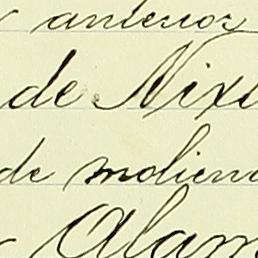 anterior
de Nixt
de molien
Alam